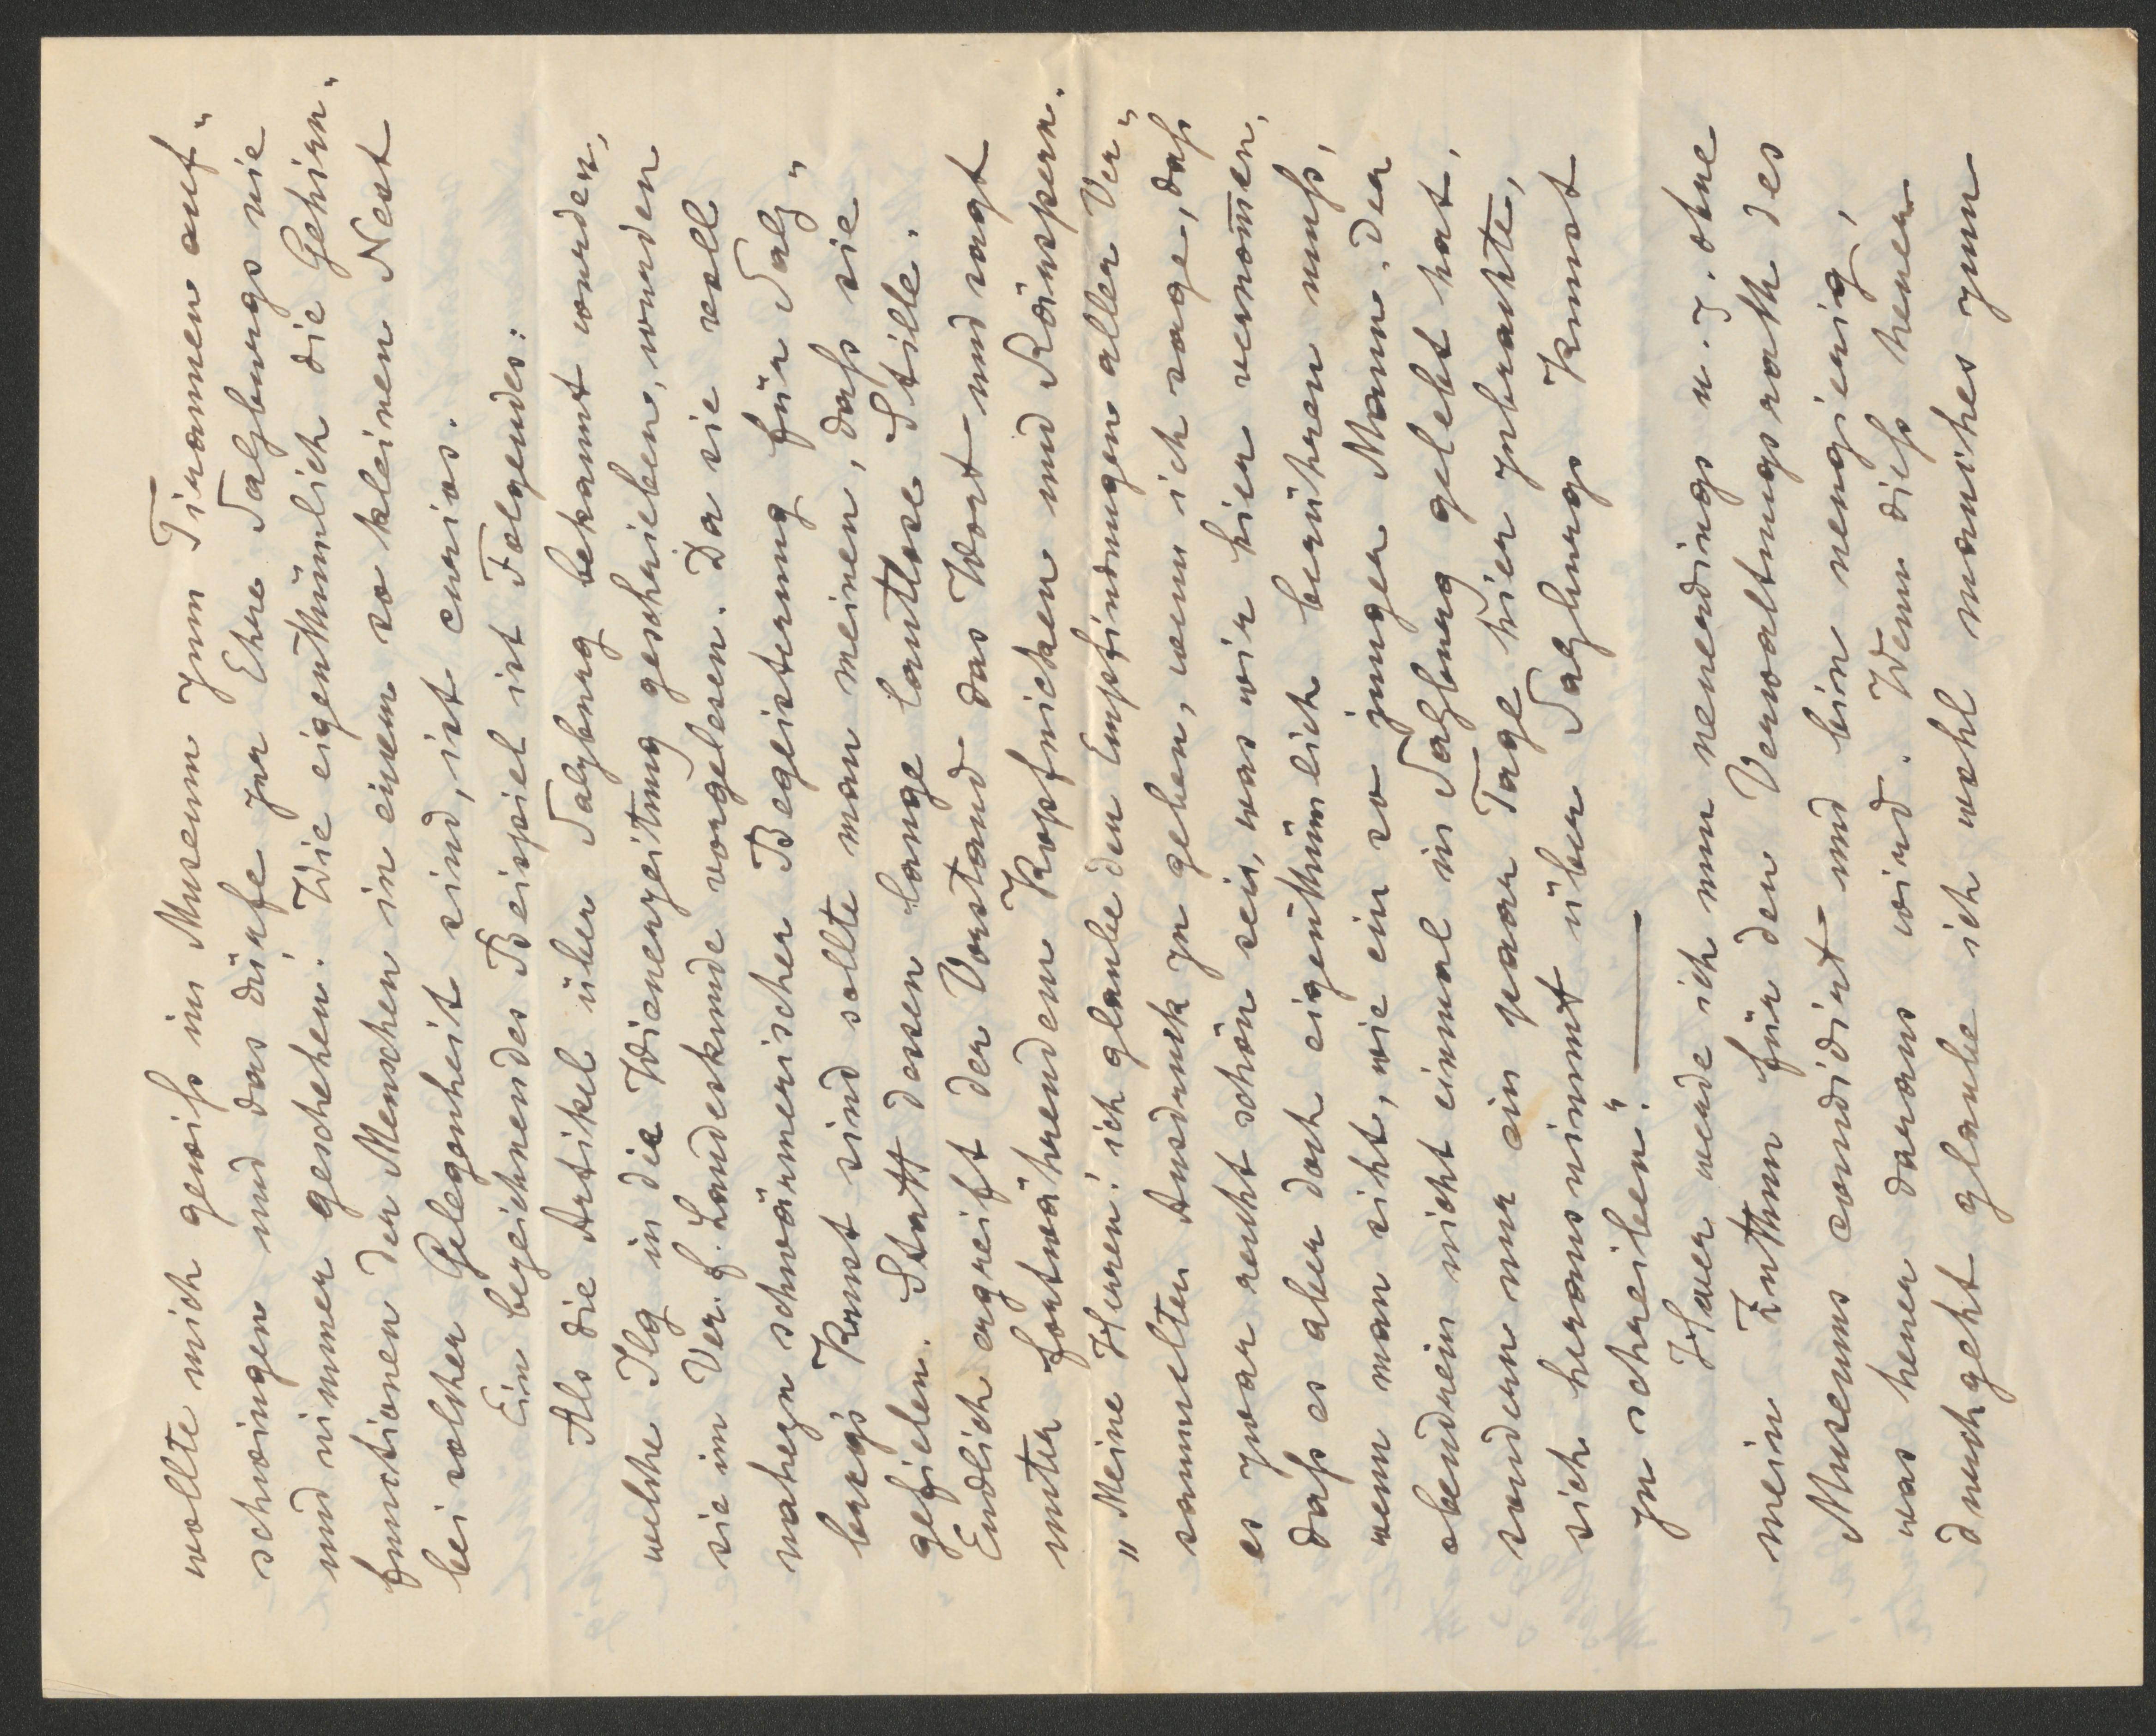 wollte mich gewiß im Museum zum Tirannen auf„
schwingen und das dürfe zur Ehre Salzburgs nie
und nimmer geschehen! Wie eigenthümlich die Gehirn„
functionen der Menschen in einem so kleinen Nest
bei solcher Gelegenheit sind, ist curios.
Ein bezeichnendes Beispiel ist Folgendes:
Als die Artikel über Salzburg bekannt wurden,
welche Ilg in die Wienerzeitung geschrieben, wurden
sie im Ver. f. Landeskunde vorgelesen. Da sie voll
nahezu schwärmerischer Begeisterung für Salz„
burg's Kunst sind sollte man meinen, daß sie
gefielen. Statt dessen lange lautlose Stille.
Endlich ergreift der Vorstand das Wort und sagt
unter fortwährendem Kopfnicken und Räuspern.
„Meine Herren! ich glaube den Empfindungen aller Ver„
sammelten Ausdruck zu geben, wenn ich sage, daß
es zwar recht schön sei, was wir hier vernom̅en,
daß es aber doch eigenthümlich berühren muß,
wenn man siht, wie ein so junger Mann, der
obendrein nicht einmal in Salzburg gelebt hat,
sondern nur ein paar Tage hier zubrachte,
sich herausnimmt über Salzburgs Kunst
zu schreiben!“ ———
Heuer werde ich nun neuerdings u. z. ohne
mein Zuthun für den Verwaltungsrath des
Museums candidirt und bin neugierig,
was heuer daraus wird. Wenn dieß heuer
durchgeht glaube ich wohl manches zum